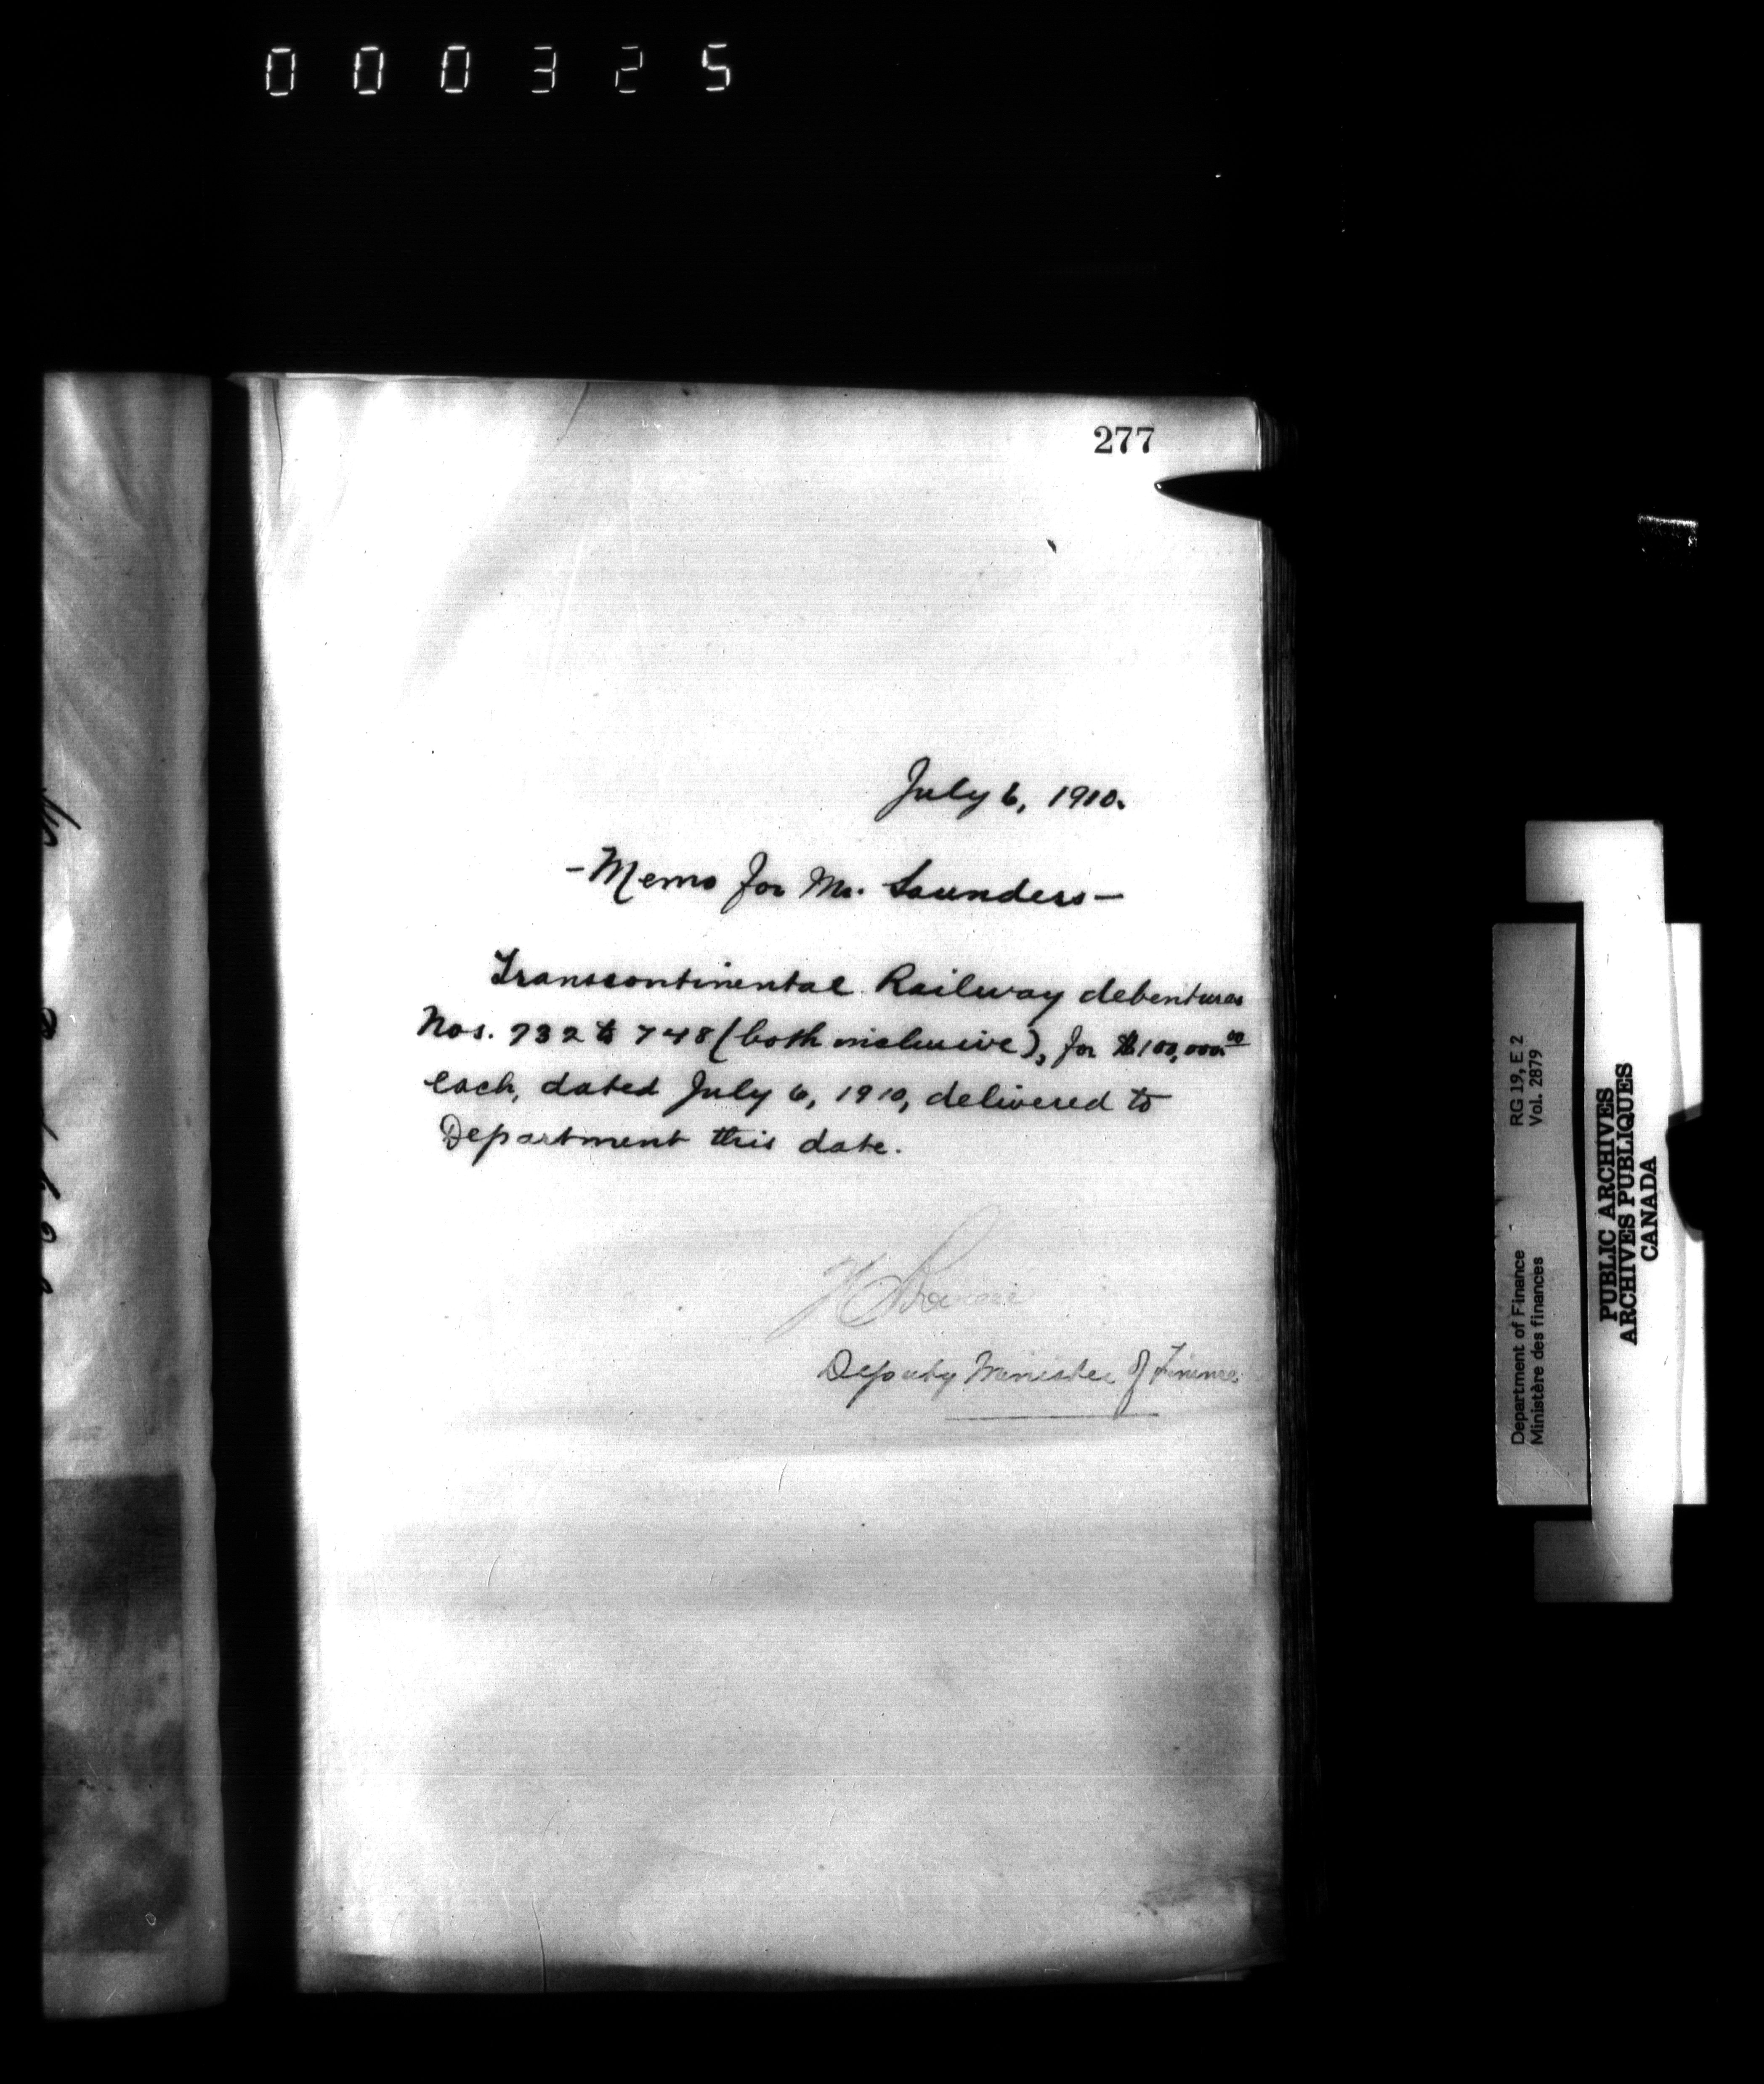 000325
277
July 6, 1910.
- Memo for Mr. Saunders -
Transcontinental Railway debentures
Nos. 732 to 748 (both inclusive), for $100,000.00
each, dated July 6, 1910, delivered to
Department this date.
Deputy Minister of Finance
Department of Finance RG 19, E 2
Ministère des finances Vol. 2879
PUBLIC ARCHIVES
ARCHIVES PUBLIQUES
CANADA